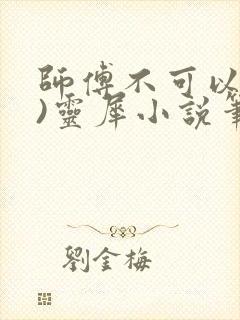 師傅不可以
)靈犀小說
劉金梅